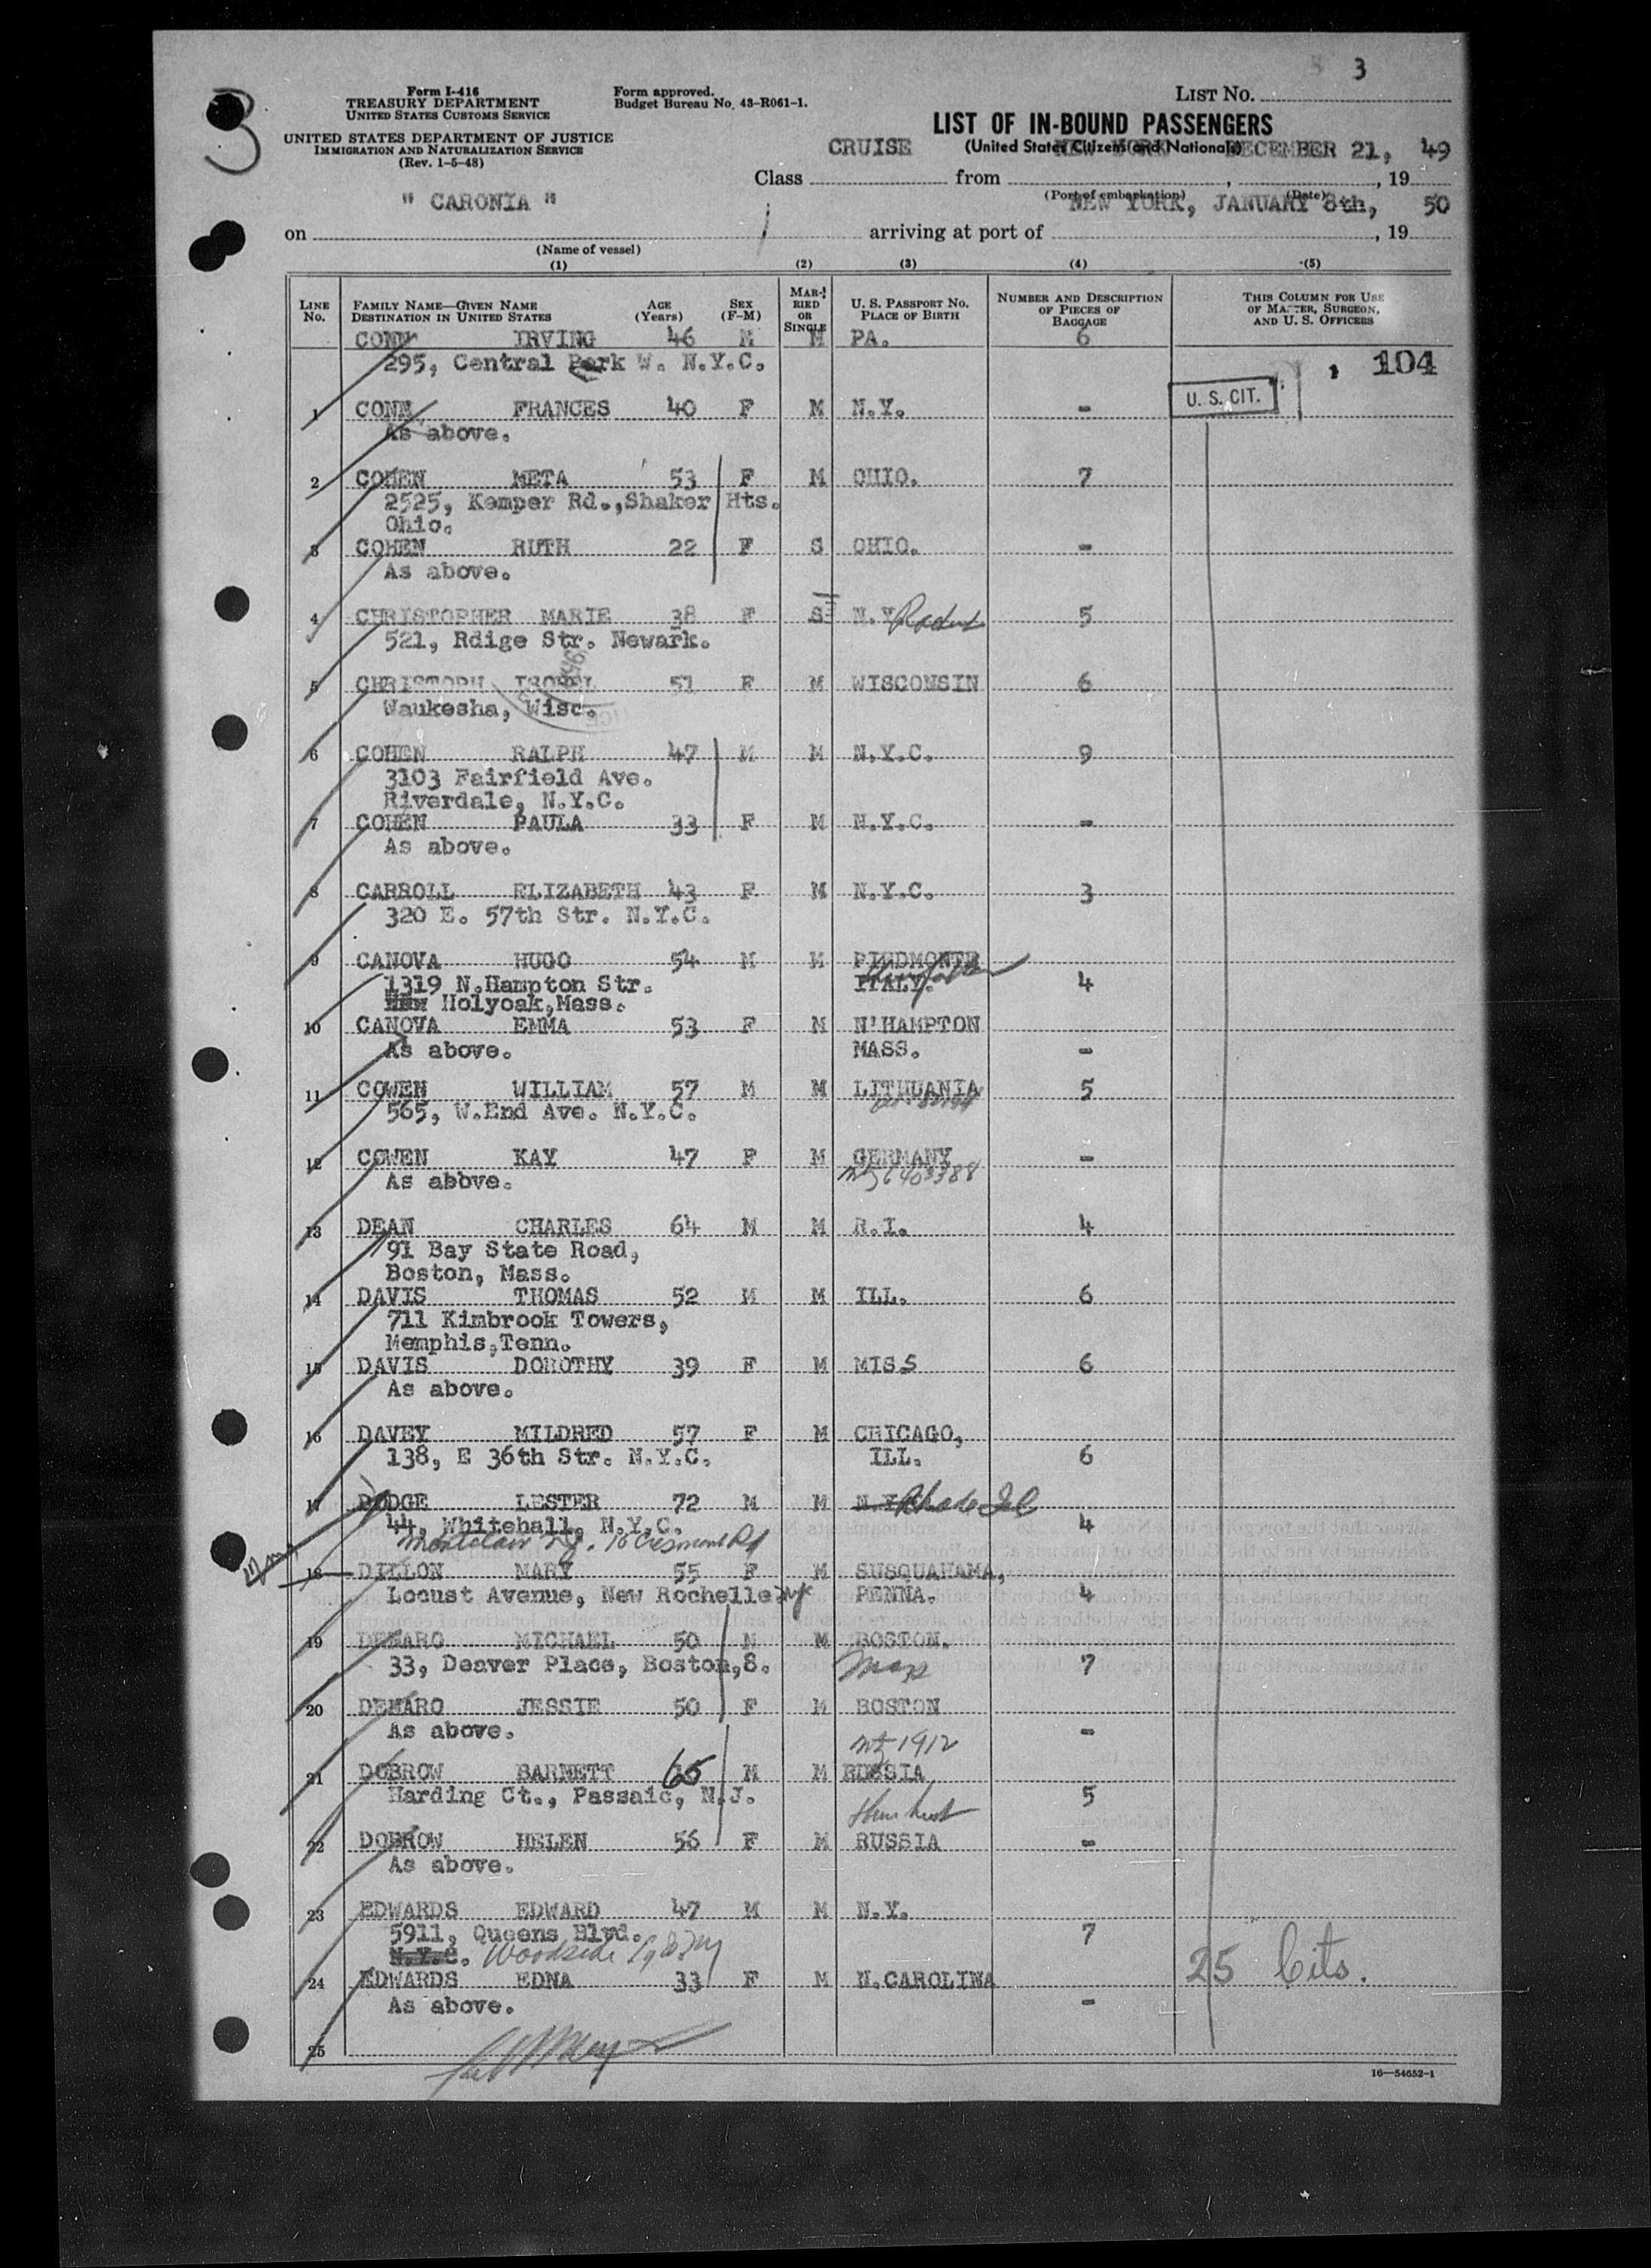 3
Form I-416
TREASURY DEPARTMENT
UNITED STATES CUSTOMS SERVICE
Form approved.
Budget Bureau No. 43-R061-1.
LIST NO.
3
UNITED STATES DEPARTMENT OF JUSTICE
IMMIGRATION AND NATURALIZATION SERVICE
(Rev. 1-5-48)
LIST OF IN-BOUND PASSENGERS
(United States Citizens and Nationals)
CRUISE NEW YORK DECEMBER 21, 49
Class from , , 19
(Port of embarkation) (Date)
" CARONIA " NEW YORK, JANUARY 8th, 50
on arriving at port of , 19
(Name of vessel)
(1) (2) (3) (4) (5)
LINE No. FAMILY NAME—GIVEN NAME DESTINATION IN UNITED STATES AGE (Years) SEX (F-M) MARRIED OR SINGLE U. S. PASSPORT NO. PLACE OF BIRTH NUMBER AND DESCRIPTION OF PIECES OF BAGGAGE THIS COLUMN FOR USE OF MASTER, SURGEON, AND U. S. OFFICERS
CONN IRVING 46 M M PA. 6
295, Central Park W. N.Y.C. 104
1 CONN FRANCES 40 F M N.Y. - U. S. CIT.
As above.
2 COHEN META 53 F M OHIO. 7
2525, Kemper Rd.,Shaker Hts.
Ohio.
3 COHEN RUTH 22 F S OHIO. -
As above.
4 CHRISTOPHER MARIE 38 F S N.Y. 5
521, Rdige Str. Newark.
5 CHRISTOPH ISOBEL 51 F M WISCONSIN 6
Waukesha, Wisc.
6 COHEN RALPH 47 M M N.Y.C. 9
3103 Fairfield Ave.
Riverdale, N.Y.C.
7 COHEN PAULA 33 F M N.Y.C. -
As above.
8 CARROLL ELIZABETH 43 F M N.Y.C. 3
320 E. 57th Str. N.Y.C.
9 CANOVA HUGO 54 M M PIEDMONTE
1319 N.Hampton Str. ITALY. 4
Holyoak,Mass.
10 CANOVA EMMA 53 F M N'HAMPTON
As above. MASS. -
11 COWEN WILLIAM 57 M M LITHUANIA 5
565, W.End Ave. N.Y.C.
12 COWEN KAY 47 F M GERMANY -
As above. 6403388
13 DEAN CHARLES 64 M M R.I. 4
91 Bay State Road,
Boston, Mass.
14 DAVIS THOMAS 52 M M ILL. 6
711 Kimbrook Towers,
Memphis,Tenn.
15 DAVIS DOROTHY 39 F M MISS 6
As above.
16 DAVEY MILDRED 57 F M CHICAGO,
138, E 36th Str. N.Y.C. ILL. 6
17 DODGE LESTER 72 M M N.Y. Rhode Isl
44, Whitehall, N.Y.C. 4
Montclair NJ. 16 Rd
18 DILLON MARY 55 F M SUSQUAHAMA,
Locust Avenue, New Rochelle NY PENNA. 4
19 DEMARO MICHAEL 50 M M BOSTON.
33, Deaver Place, Boston,8. Mass 7
20 DEMARO JESSIE 50 F M BOSTON
As above. -
1912
21 DOBROW BARNETT 65 M M RUSSIA
Harding Ct., Passaic, N.J. 5
22 DOBROW HELEN 56 F M RUSSIA -
As above.
23 EDWARDS EDWARD 47 M M N.Y.
5911, Queens Blvd. 7
N.Y.C. Woodside
24 EDWARDS EDNA 33 F M N.CAROLINA 25 Cits.
As above. -
25
16—54652-1